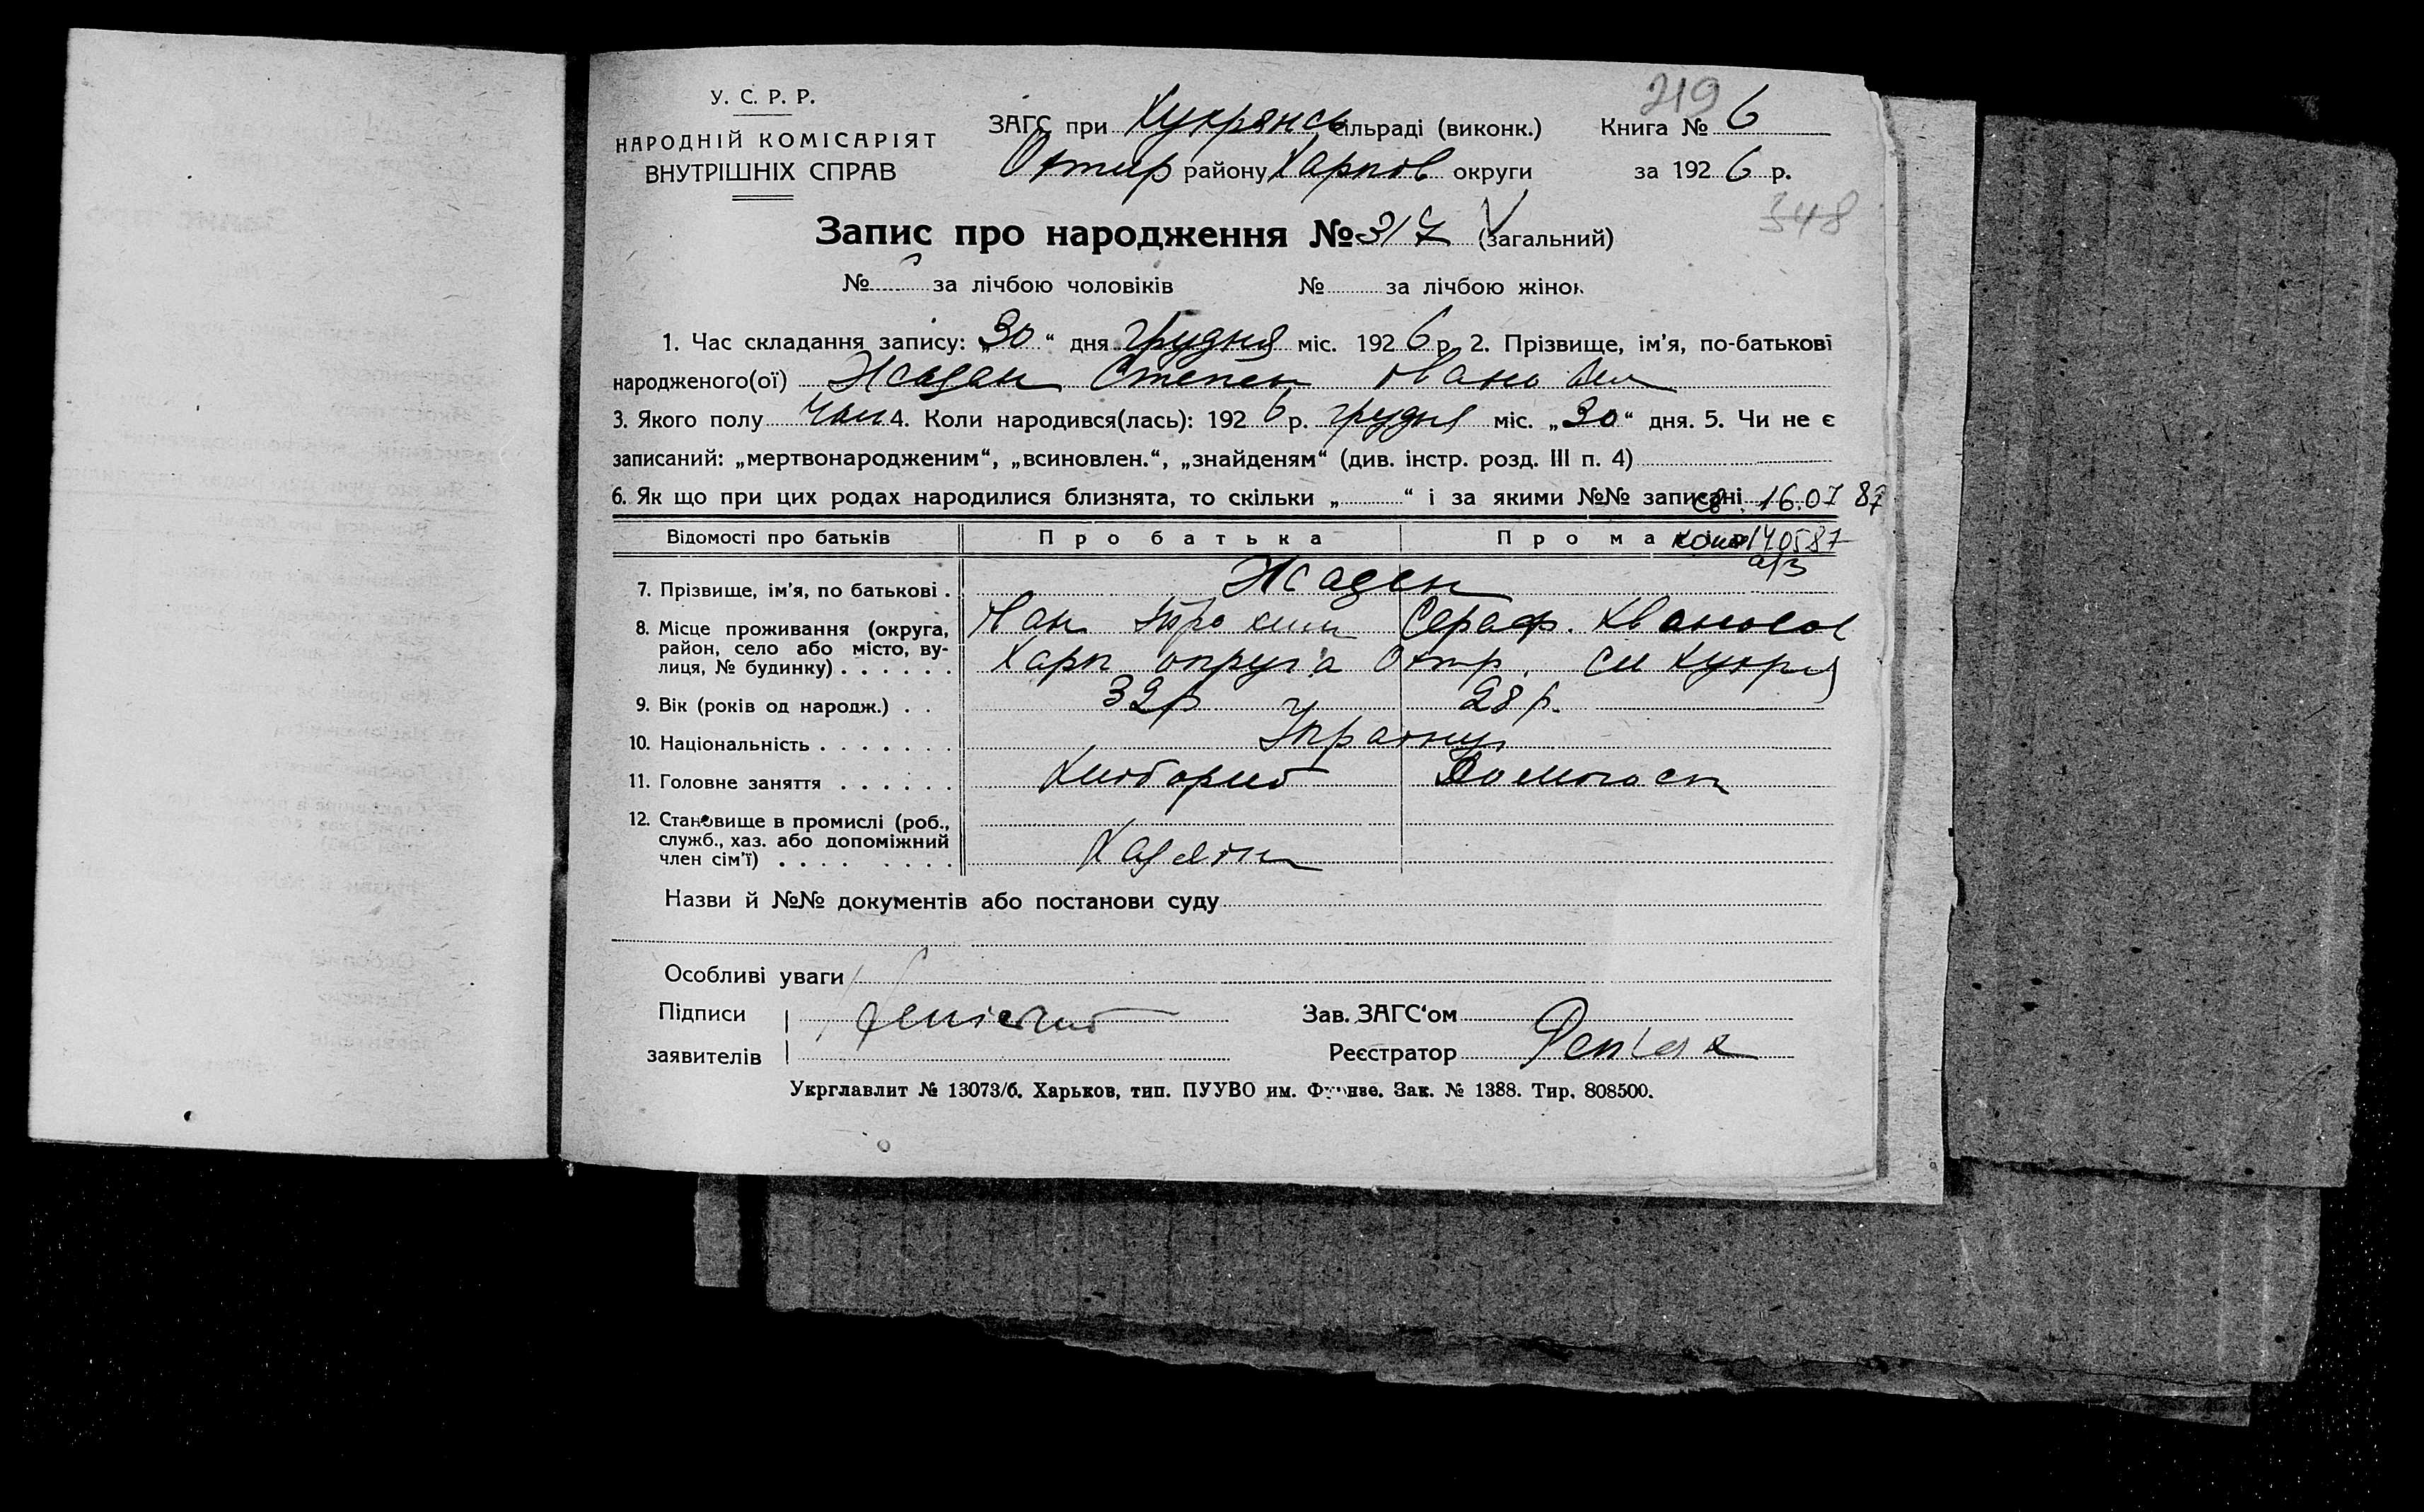 219
У. С. Р. Р.
НАРОДНІЙ КОМІСАРІЯТ
ВНУТРІШНІХ СПРАВ
ЗАГС при Кукрянсь сільраді (виконк.) Книга № 6
Охтир району Харків округи за 192 6 р.
348
Запис про народження № 317 (загальний)
№ за лічбою чоловіків № за лічбою жінок
1. Час складання запису: „30“ дня грудня міс. 192 6 р. 2. Прізвище, ім'я, по-батькові
народженого(ої) Жадан Степан Іванович
3. Якого полу Чол 4. Коли народився(лась): 192 6 р. грудня міс. „30“ дня. 5. Чи не є
записаний: „мертвонародженим“, „всиновлен.“, „знайденям“ (див. інстр. розд. III п. 4)
6. Як що при цих родах народилися близнята, то скільки „ “ і за якими №№ записані
св. 16.07 87
Відомості про батьків Про батька Про ма
140587
7. Прізвище, ім'я, по батькові . Жаден
Іван Сераф. Іванова
8. Місце проживання (округа, район, село або місто, вулиця, № будинку) . . . . . . Харк округа Охтр с Кукря
9. Вік (років од народж.) . . 32р 28 р.
10. Національність . . . . . . . Україну
11. Головне заняття . . . . . . Хлібороб Домогосп
12. Становище в промислі (роб., служб., хаз. або допоміжний член сім'ї) . . . . . . . . Хазяїн
Назви й №№ документів або постанови суду
Особливі уваги
Підписи Зав. ЗАГС'ом
заявителів Реєстратор
Укрглавлит № 13073/б. Харьков, тип. ПУУВО им. Фрунзе. Зак. № 1388. Тир. 808500.